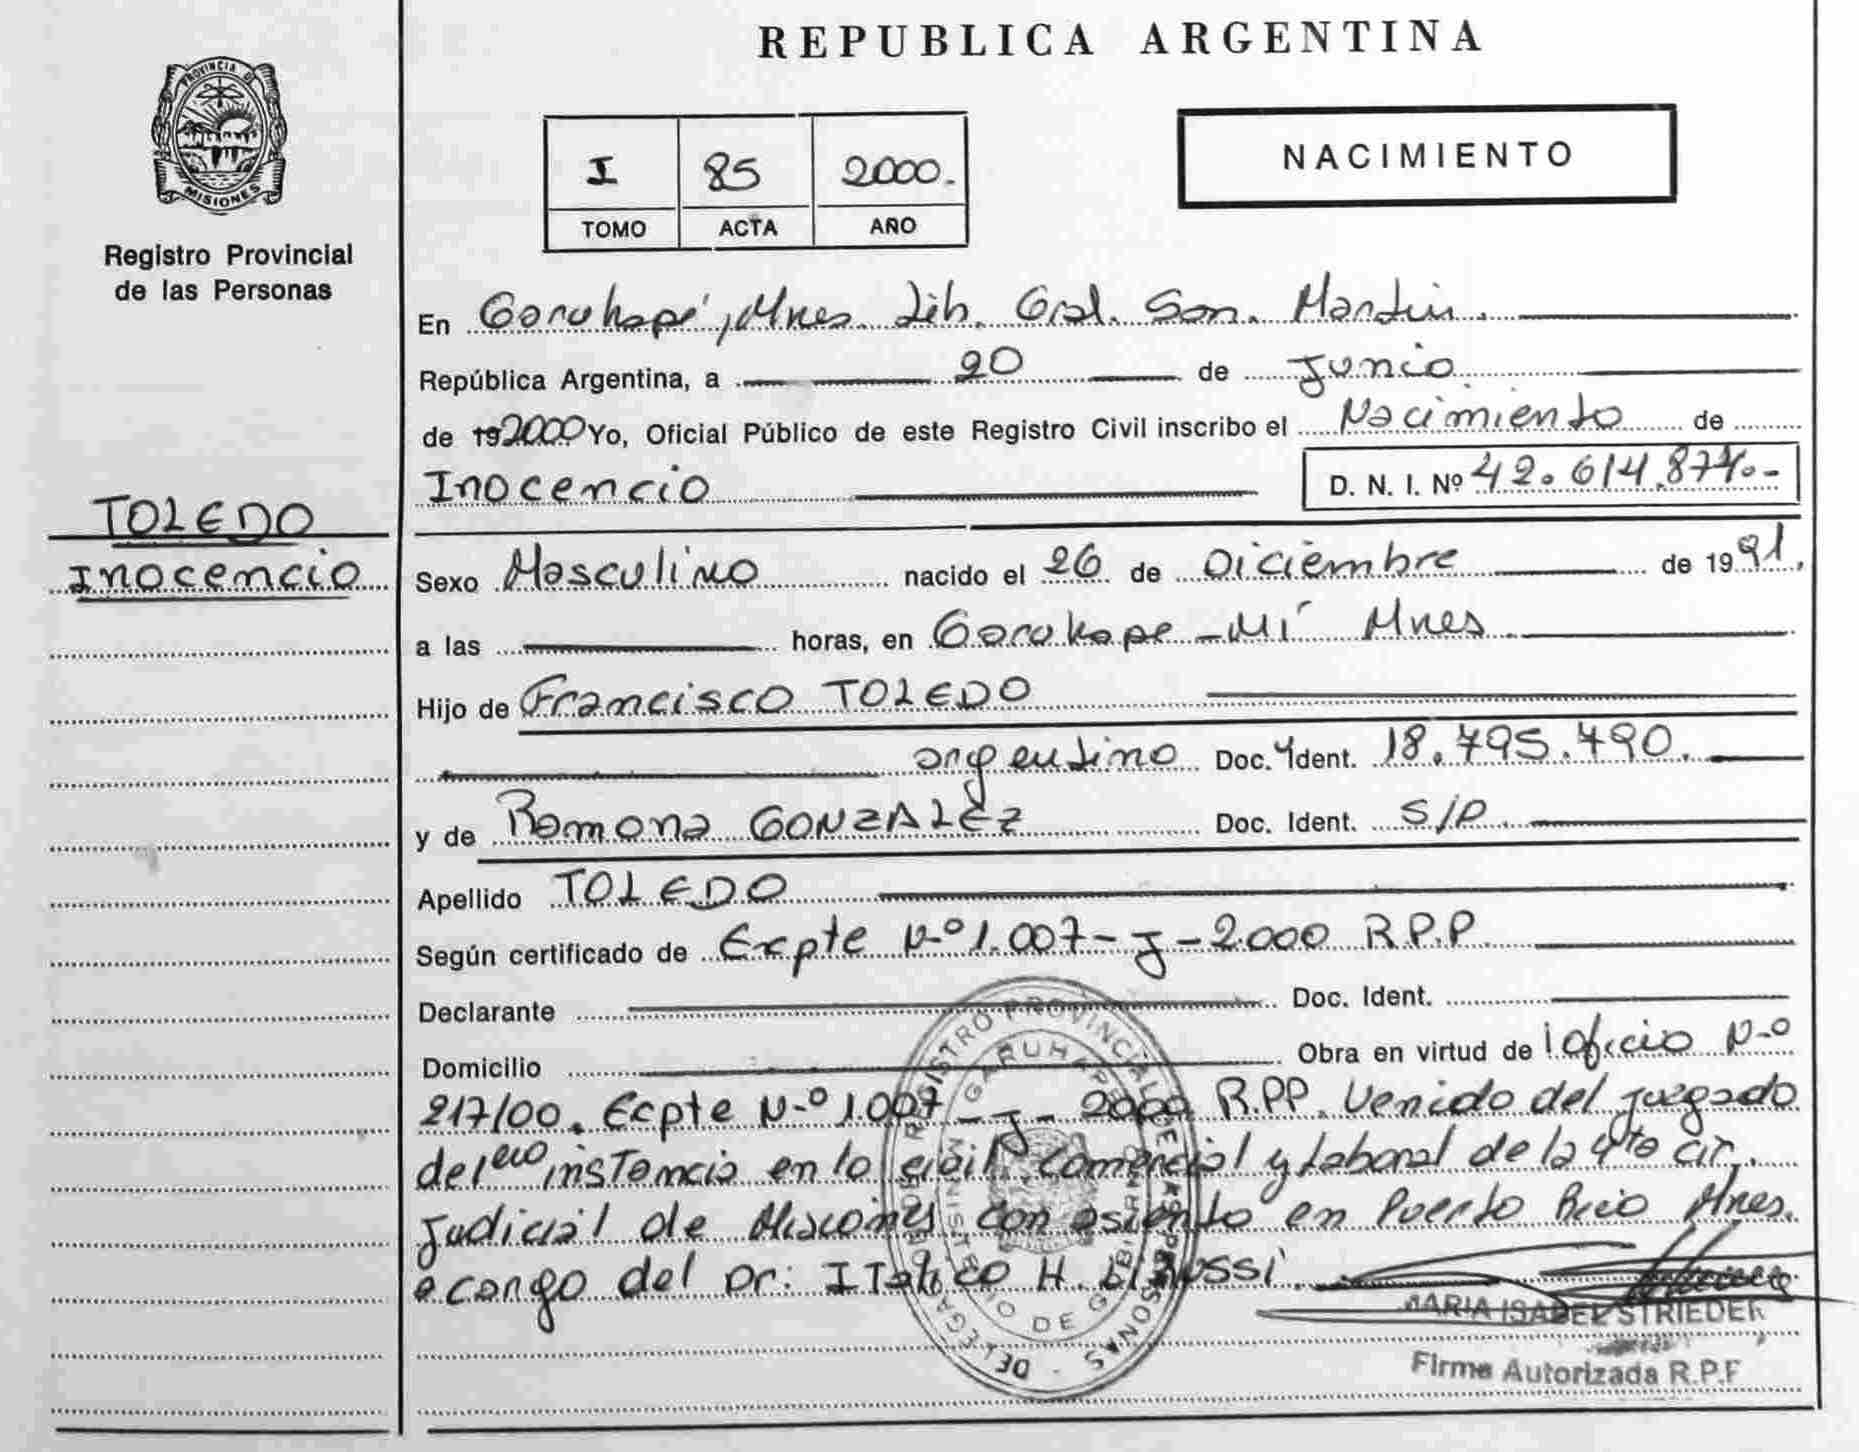 REPUBLICA ARGENTINA
PROVINCIA DE
MISIONES
Registro Provincial
de las Personas
I 85 2000.
TOMO ACTA AÑO
NACIMIENTO
En Garuhapé, Mnes. Lib. Gral. San. Martin.
República Argentina, a 20 de Junio
de 192000 Yo, Oficial Público de este Registro Civil inscribo el Nacimiento de
Inocencio D. N. I. Nº 42.614.874.-
TOLEDO
Inocencio
Sexo Masculino nacido el 26 de Diciembre de 1991.
a las horas, en Garuhape-Mí Mnes
Hijo de Francisco TOLEDO
argentino Doc. Ident. 18.795.490.
y de Ramona GONZALEZ Doc. Ident. S/D.
Apellido TOLEDO
Según certificado de Expte N-º 1.007-J-2000 R.P.P.
Declarante Doc. Ident.
Domicilio Obra en virtud de oficio N-º
217/00. Ecpte N-º 1.007-J-2000 R.PP. Venido del juzgado
de 1era instancia en lo civil, Comercial y Laboral de la 4to cir.
Judicial de Misiones con asiento en Puerto Rico Mnes.
a cargo del Dr: H.
MARIA ISABEL STRIEDER
Firma Autorizada R.P.P
REGISTRO PROVINCIAL DE LAS PERSONAS
GARUHAPE
MINISTERIO DE GOBIERNO